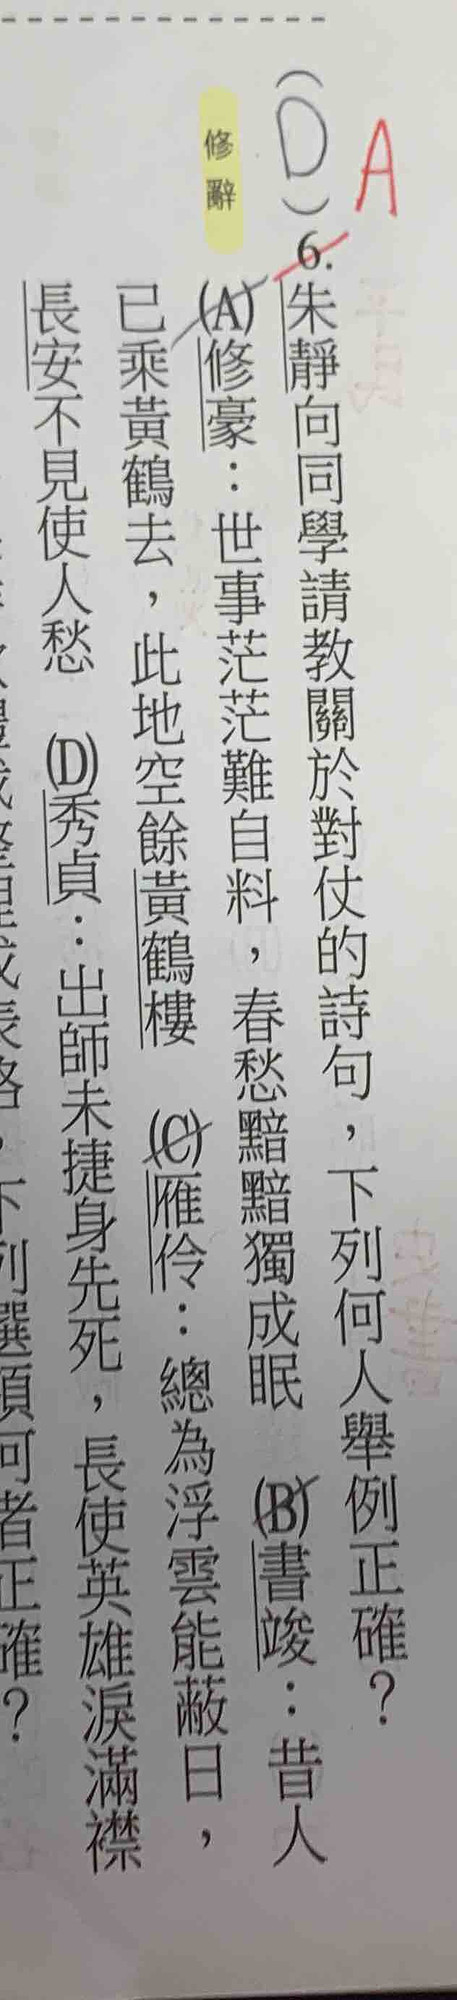 A
(D)6.朱靜向同學請教關於對仗的詩句，下列何人舉例正確？
修辭
(A)修豪：世事茫茫難自料，春愁黯黯獨成眠　(B)書竣：昔人
已乘黃鶴去，此地空餘黃鶴樓　(C)雁伶：總為浮雲能蔽日，
長安不見使人愁　(D)秀貞：出師未捷身先死，長使英雄淚滿襟
下列選項何者正確？